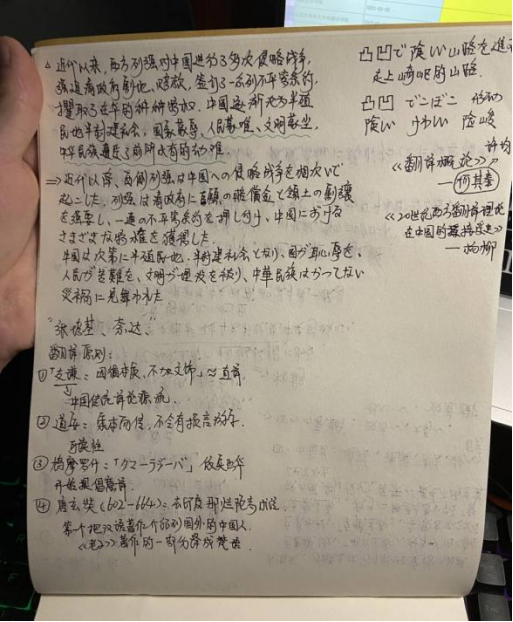 近代以来,西方列强对中国进行了多次侵略战争,
强迫清政府割地、赔款,签订了一系列不平等条约,
攫取了在华的种种特权。中国逐渐成为半殖
民地半封建社会,国家蒙辱、人民蒙难、文明蒙尘,
中华民族遭受了前所未有的劫难
⇒近代以降、西側列強は中国への侵略戦争を相次いで
起こした。列強は清政府に巨額の賠償金と領土の割譲
を強要し、一連の不平等条約を押し付け、中国における
さまざまな特権を獲得した。
中国は次第に半植民地、半封建社会となり、国が恥辱を、
人民が苦難を、文明が埃を被り、中華民族はかつてない
災禍に見舞われた
翻译原则:
①「支谦:因循本旨,不加文饰」≈直译
中国传统译论源流.
② 道安:案本而传,不令有损言游字.
③ 鸠摩罗什:「クマーラジーバ」
开始提倡意译.
④ 唐玄奘(602-664):去印度那烂陀寺
第一个把汉语著作介绍到国外的中国人.
《老子》著作的一部分译成梵语
凸凹で険しい山路を
走上崎岖的山路.
凸凹 でこぼこ 形动
険しい けわしい 险峻
《翻译概论》
——何其莘
《20世纪西方翻译理论
在中国的接受史》
——杨柳